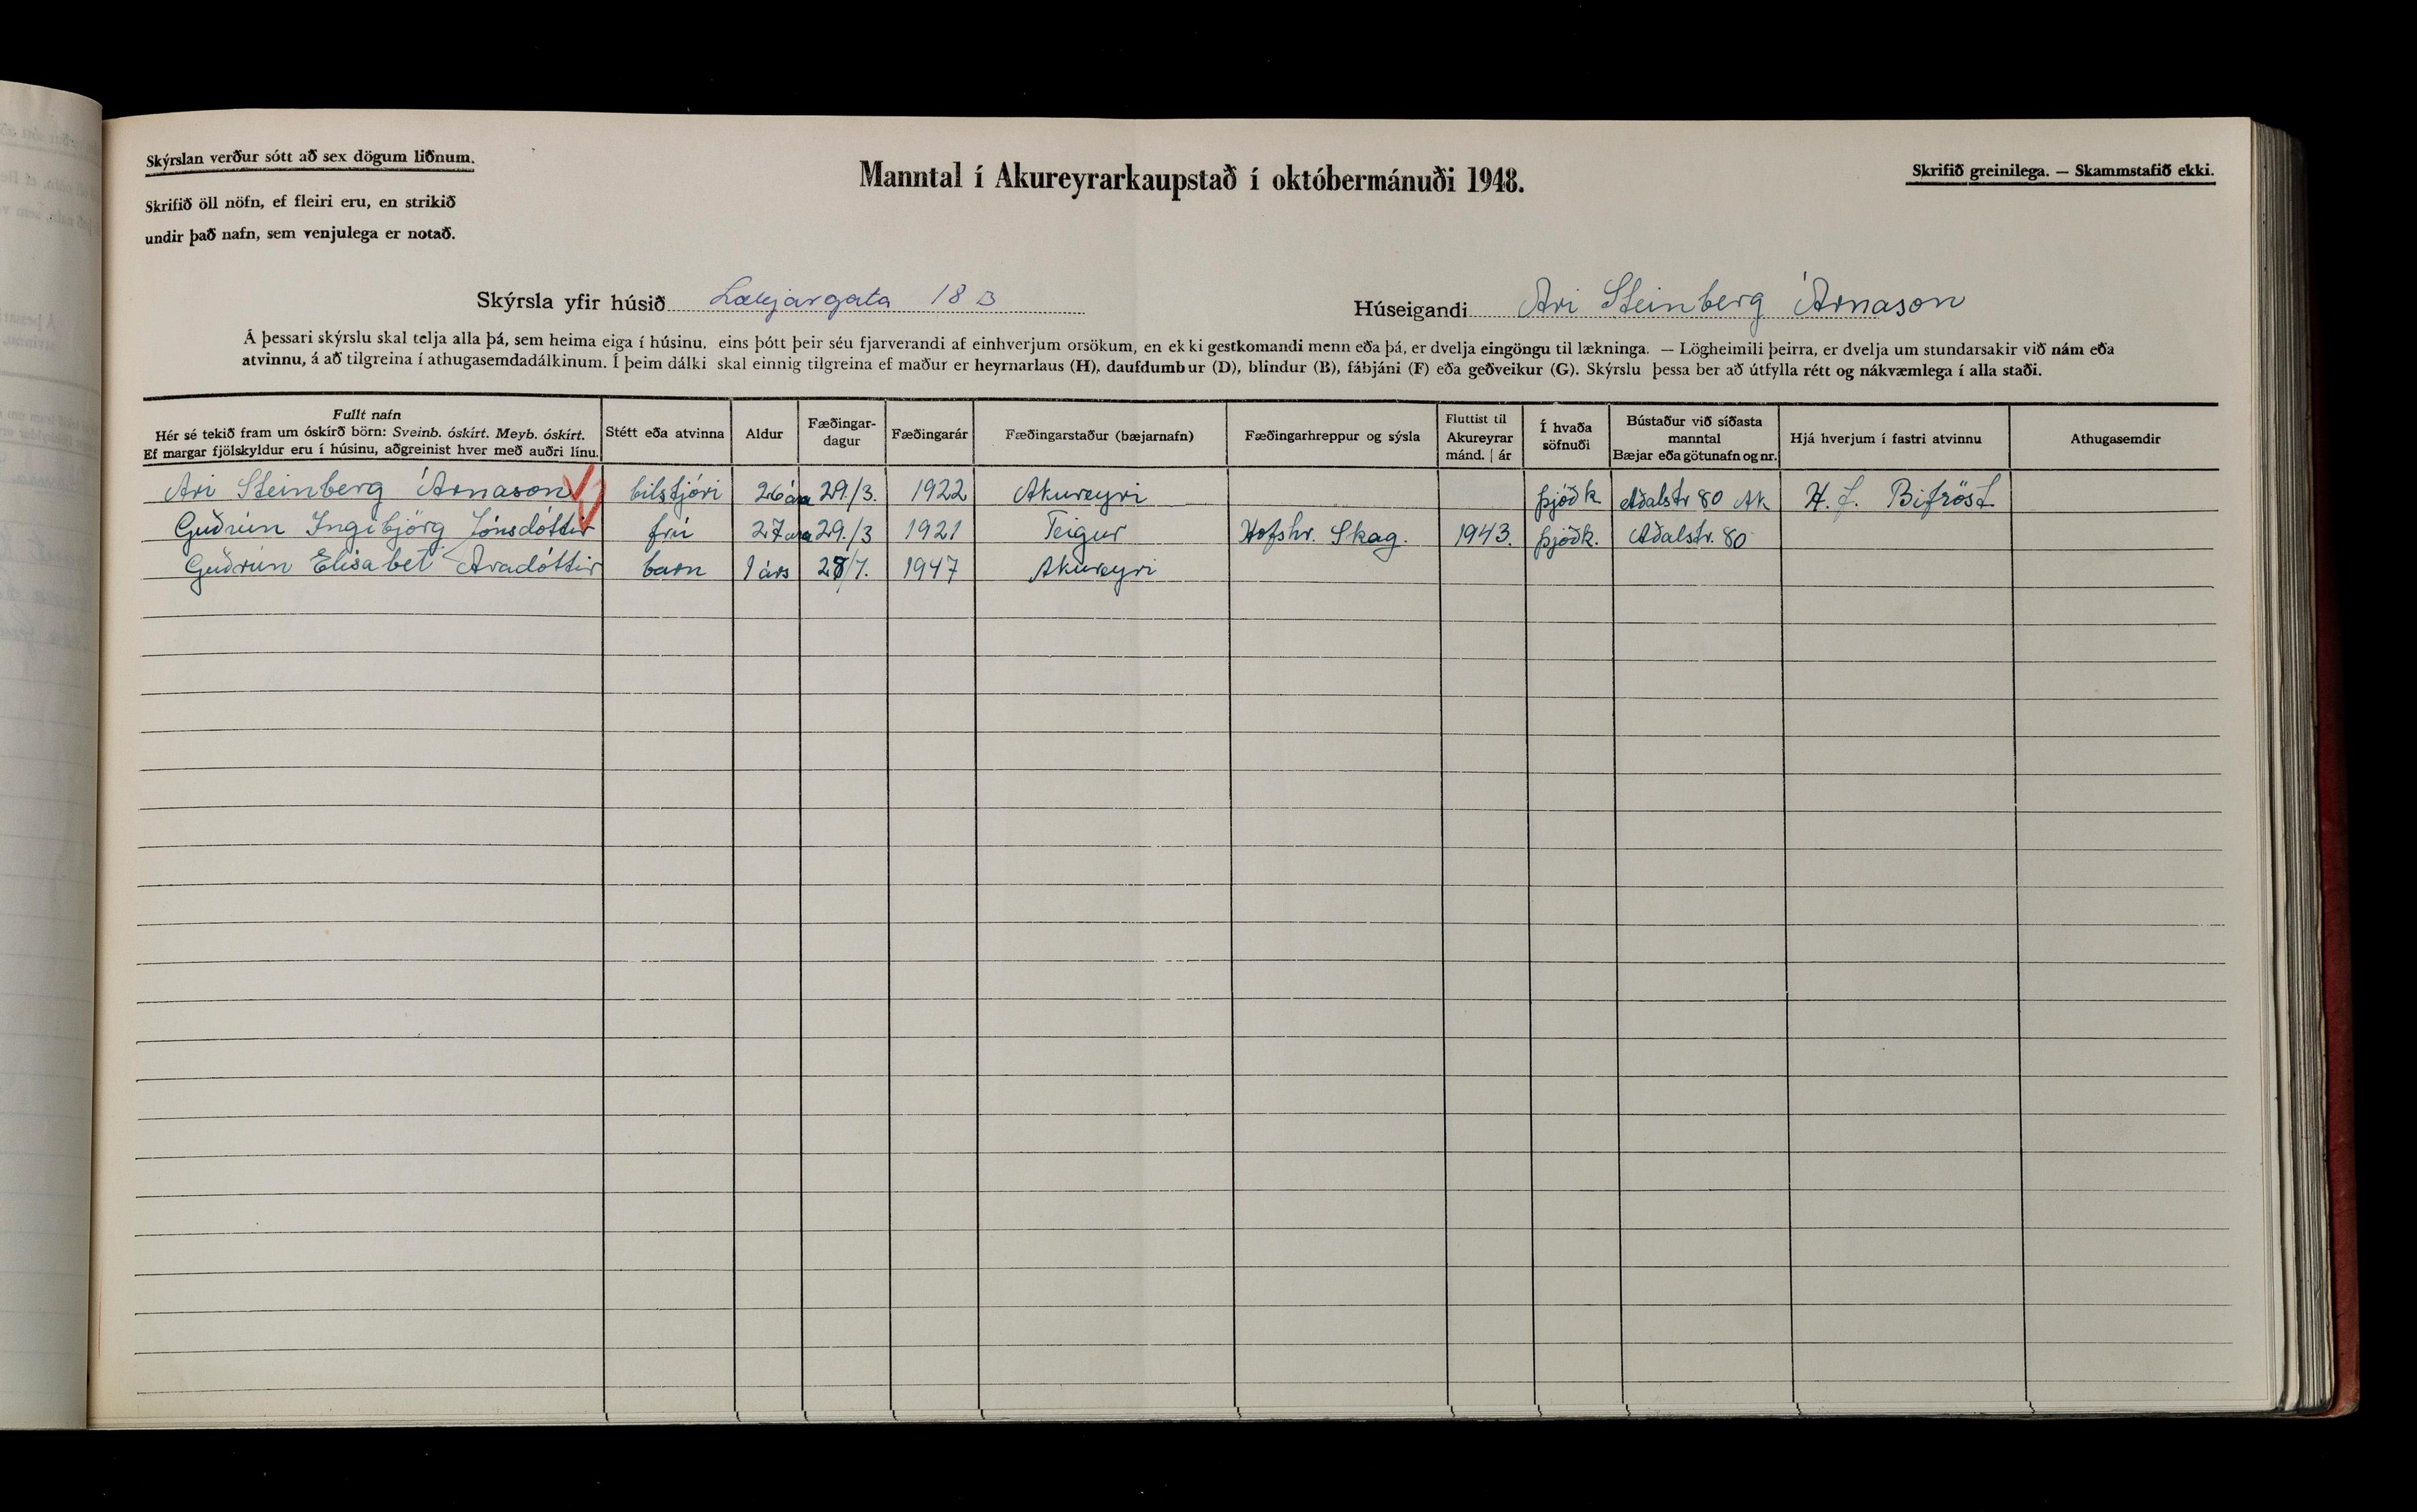 Skýrslan verður sótt að sex dögum liðnum.
Skrifið öll nöfn, ef fleiri eru, en strikið
undir það nafn, sem venjulega er notað.
Manntal í Akureyrarkaupstað í októbermánuði 1948.
Skrifið greinilega. — Skammstafið ekki.
Skýrsla yfir húsið Lækjargata 18 B
Húseigandi Ari Steinberg Árnason
Á þessari skýrslu skal telja alla þá, sem heima eiga í húsinu, eins þótt þeir séu fjarverandi af einhverjum orsökum, en ekki gestkomandi menn eða þá, er dvelja eingöngu til lækninga. — Lögheimili þeirra, er dvelja um stundarsakir við nám eða
atvinnu, á að tilgreina í athugasemdadálkinum. Í þeim dálki skal einnig tilgreina ef maður er heyrnarlaus (H), daufdumbur (D), blindur (B), fábjáni (F) eða geðveikur (G). Skýrslu þessa ber að útfylla rétt og nákvæmlega í alla staði.
Fullt nafn
Hér sé tekið fram um óskírð börn: Sveinb. óskírt. Meyb. óskírt.
Ef margar fjölskyldur eru í húsinu, aðgreinist hver með auðri línu.
Stétt eða atvinna
Aldur
Fæðingar-
dagur
Fæðingarár
Fæðingarstaður (bæjarnafn)
Fæðingarhreppur og sýsla
Fluttist til
Akureyrar
mánd. | ár
Í hvaða
söfnuði
Bústaður við síðasta
manntal
Bæjar eða götunafn og nr.
Hjá hverjum í fastri atvinnu
Athugasemdir
Ari Steinberg Árnason bílstjóri 26 ára 29./3. 1922 Akureyri þjóðk Aðalstr 80 Ak H. f. Bifröst
Guðrún Ingibjörg Jónsdóttir frú 27 ára 29./3 1921 Teigur Hofshr. Skag. 1943. þjóðk. Aðalstr. 80
Guðrún Elísabet Aradóttir barn 1 árs 28/7. 1947 Akureyri